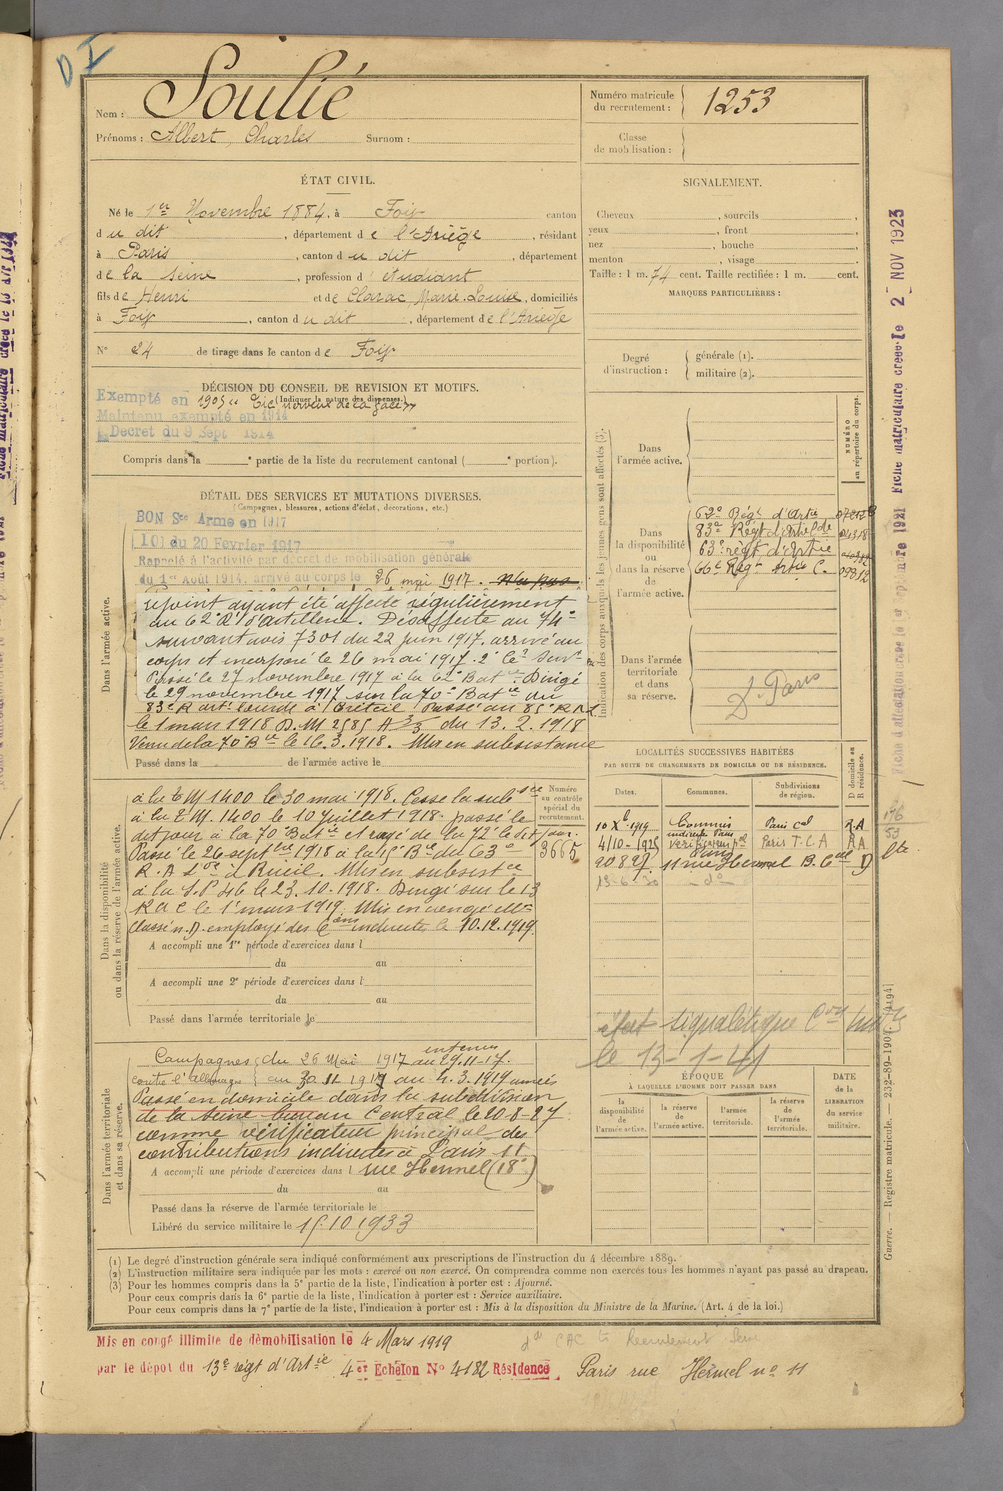 D I
Nom : Soulié
Prénoms : Albert, Charles Surnom :
ÉTAT CIVIL.
Né le 1er Novembre 1884, à Foix canton
d u dit, département d e l'Ariège, résidant
à Paris, canton d u dit, département
de la Seine, profession d' étudiant
fils de Henri et de Clarac Marie-Louise, domiciliés
à Foix, canton d u dit, département d e l'Ariège
N° 24 de tirage dans le canton d e Foix
DÉCISION DU CONSEIL DE REVISION ET MOTIFS.
(Indiquer la nature des dispenses.)
Exempté en 1905 Tic nerveux de la face
Maintenu exempté en 1914
Décret du 9 Sept 1914
Compris dans la e partie de la liste du recrutement cantonal ( e portion).
DÉTAIL DES SERVICES ET MUTATIONS DIVERSES.
(Campagnes, blessures, actions d'éclat, décorations, etc.)
Dans l'armée active.
BON Sce Armé en 1917
loi du 20 Fevrier 1917
Rappelé à l'activité par décret de mobilisation générale
du 1er Août 1914, arrivé au corps le 26 mai 1917. N'a pas
rejoint ayant été affecté régulièrement
au 62e R d'artillerie. Désaffecté au 74e
suivant avis 7301 du 22 juin 1917. arrivé au
corps et incorporé le 26 mai 1917. 2e cl
Passé le 27 novembre 1917 à la 62e Batie Dirigé
le 29 novembre 1917 sur la 70e Batie du
83e R art. lourde à Créteil Passé au 85e R.A.L
le 1 mars 1918 D.M 2585 A 3/3 du 13.2.1918
Venu de la 70e Bie le 16.3.1918. Mis en subsistance
Passé dans la de l'armée active le
Dans la disponibilité
ou dans la réserve de l'armée active.
à la T M 1400 le 30 mai 1918. Cesse la subsce
à la T.M. 1400 le 10 juillet 1918. passé le
dit jour à la 70e Batie et rayé de la 72e le dit jour.
Passé le 26 septbre 1918 à la 15e Bie du 63e
R.A à Rueil. Mis en subsistce
à la S.P 46 le 23.10.1918. Dirigé sur le 13
R a C le 1er mars 1919. Mis en congé illté
Classé n.D. employé des Cons indirectes le 10.12.1919
Numéro
au contrôle
spécial du
recrutement.
3665
A accompli une 1re période d'exercices dans l
du au
A accompli une 2e période d'exercices dans l
du au
Passé dans l'armée territoriale le
Dans l'armée territoriale
et dans sa réserve.
Campagnes du 26 Mai 1917 au 29.11.17. intérieur
contre l'Allemagne au 30.11.1917 au 4.3.1919 armées
Passé en domicile dans la subdivision
de la Seine bureau Central le 20-8-27
comme vérificateur principal des
contributions indirectes à Paris 11
A accompli une période d'exercices dans l rue Hermel (18e)
du au
Passé dans la réserve de l'armée territoriale le
Libéré du service militaire le 15 10 1933
Numéro matricule
du recrutement : 1253
Classe
de mobilisation :
SIGNALEMENT.
Cheveux , sourcils ,
yeux , front ,
nez , bouche ,
menton , visage ,
Taille : 1 m. 74 cent. Taille rectifiée : 1 m. cent.
MARQUES PARTICULIÈRES :
Degré
d'instruction :
générale (1).
militaire (2).
Indication des corps auxquels les jeunes gens sont affectés (3).
NUMÉRO
au répertoire du corps.
Dans
l'armée active.
Dans
la disponibilité
ou
dans la réserve
de
l'armée active.
62e Régt d'Artie
83e Régt d'Artie Lde
63e régt d'Artie
66e Régt Artie C.
Dans l'armée
territoriale
et dans
sa réserve.
Paris
LOCALITÉS SUCCESSIVES HABITÉES
PAR SUITE DE CHANGEMENTS DE DOMICILE OU DE RÉSIDENCE.
Dates. Communes. Subdivisions
de région. D domicile ou
R résidence.
10 Xb 1919 Commis indirects Paris Paris Cal R.A
4/10-1925 Vérificateur pal Paris Paris T.C.A R A
20 8 27 11 rue Hermel B. Cal D
13-6-30 do
état signalétique
le 13-1-41
ÉPOQUE
À LAQUELLE L'HOMME DOIT PASSER DANS
DATE
de la
LIBÉRATION
du service
militaire.
la
disponibilité
de
l'armée active.
la réserve
de
l'armée active.
l'armée
territoriale.
la réserve
de
l'armée
territoriale.
(1) Le degré d'instruction générale sera indiqué conformément aux prescriptions de l'instruction du 4 décembre 1889.
(2) L'instruction militaire sera indiquée par les mots : exercé ou non exercé. On comprendra comme non exercés tous les hommes n'ayant pas passé au drapeau.
(3) Pour les hommes compris dans la 5e partie de la liste, l'indication à porter est : Ajourné.
Pour ceux compris dans la 6e partie de la liste, l'indication à porter est : Service auxiliaire.
Pour ceux compris dans la 7e partie de la liste, l'indication à porter est : Mis à la disposition du Ministre de la Marine. (Art. 4 de la loi.)
Mis en congé illimité de démobilisation le 4 Mars 1919
par le dépot du 13e régt d'Artie 4er Echelon N° 4182 Résidence Paris rue Hermel n° 11
Recrutement Seine
Fiche matriculaire créée le 2 NOV 1923
Guerre. — Registre matricule. — 232-89-1907. [1194]